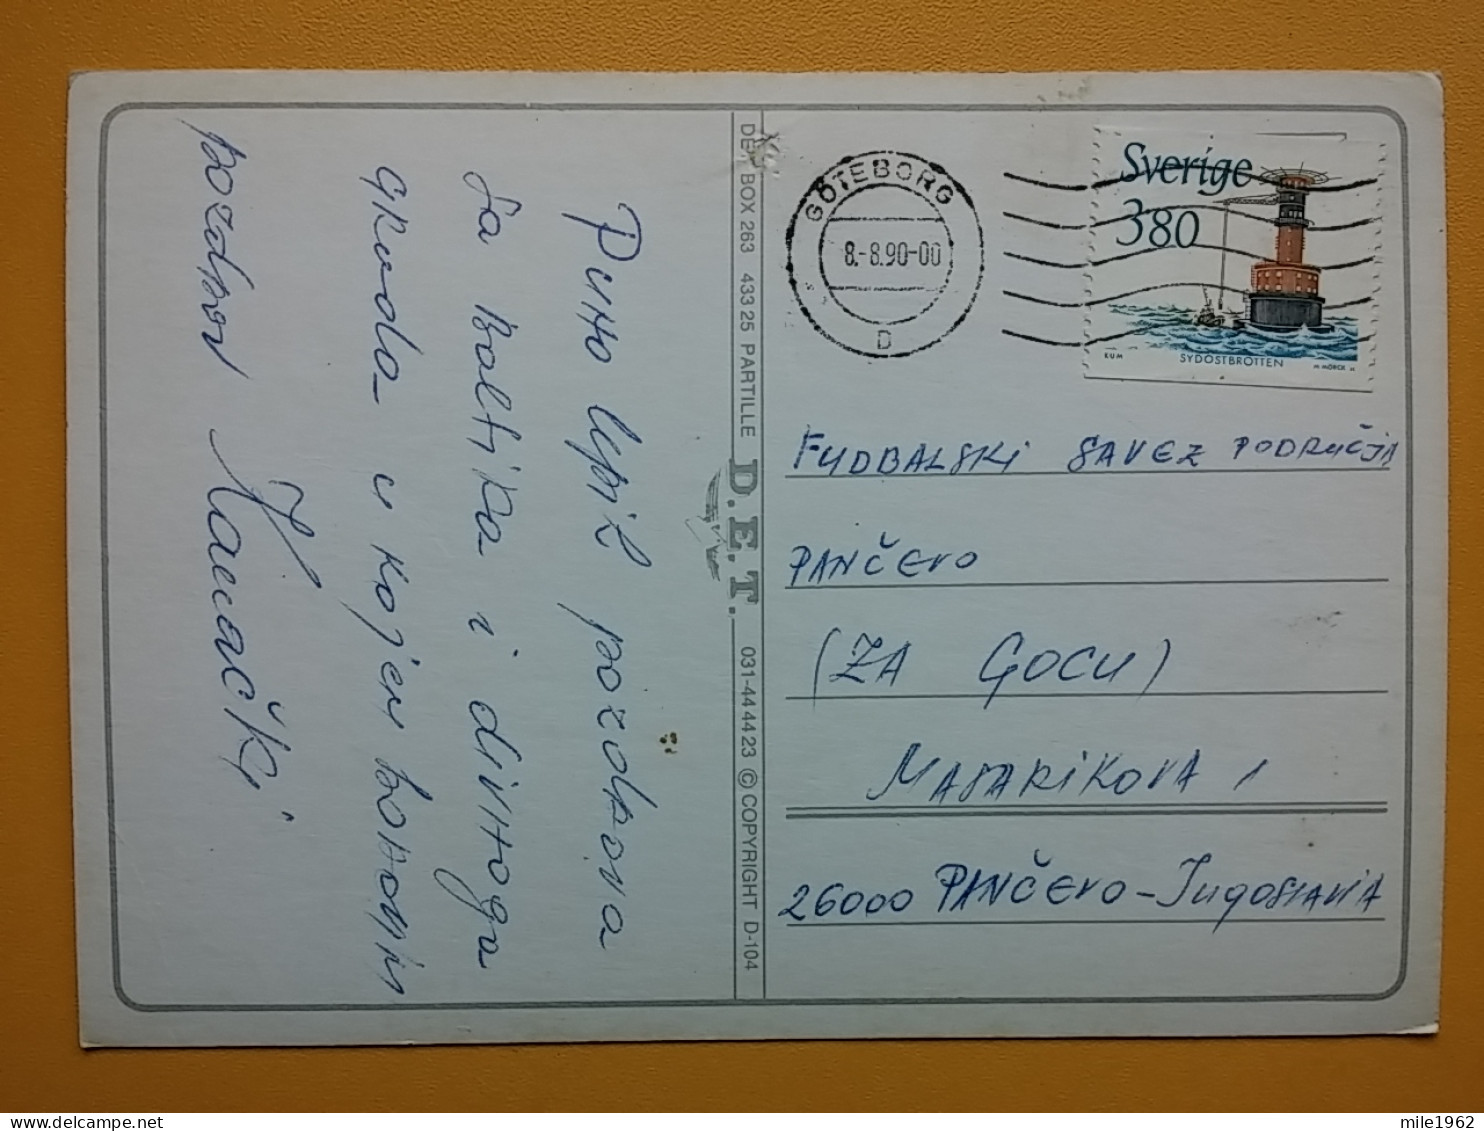 Puno lepih pozdrava
sa Baltika i divnoga
grada u kojem boravim
pozdrav
DET BOX 263 433 25 PARTILLE D.E.T. 031-44 44 23 © COPYRIGHT D-104
GÖTEBORG
8.-8.90-00
D
Sverige
380
SYDOSTBROTTEN
EUM
M MÖRCK
FUDBALSKI SAVEZ PODRUČJA
PANČEVO
(ZA GOCU)
MASARIKOVA 1
26000 PANČEVO-Jugoslavia
mile1962